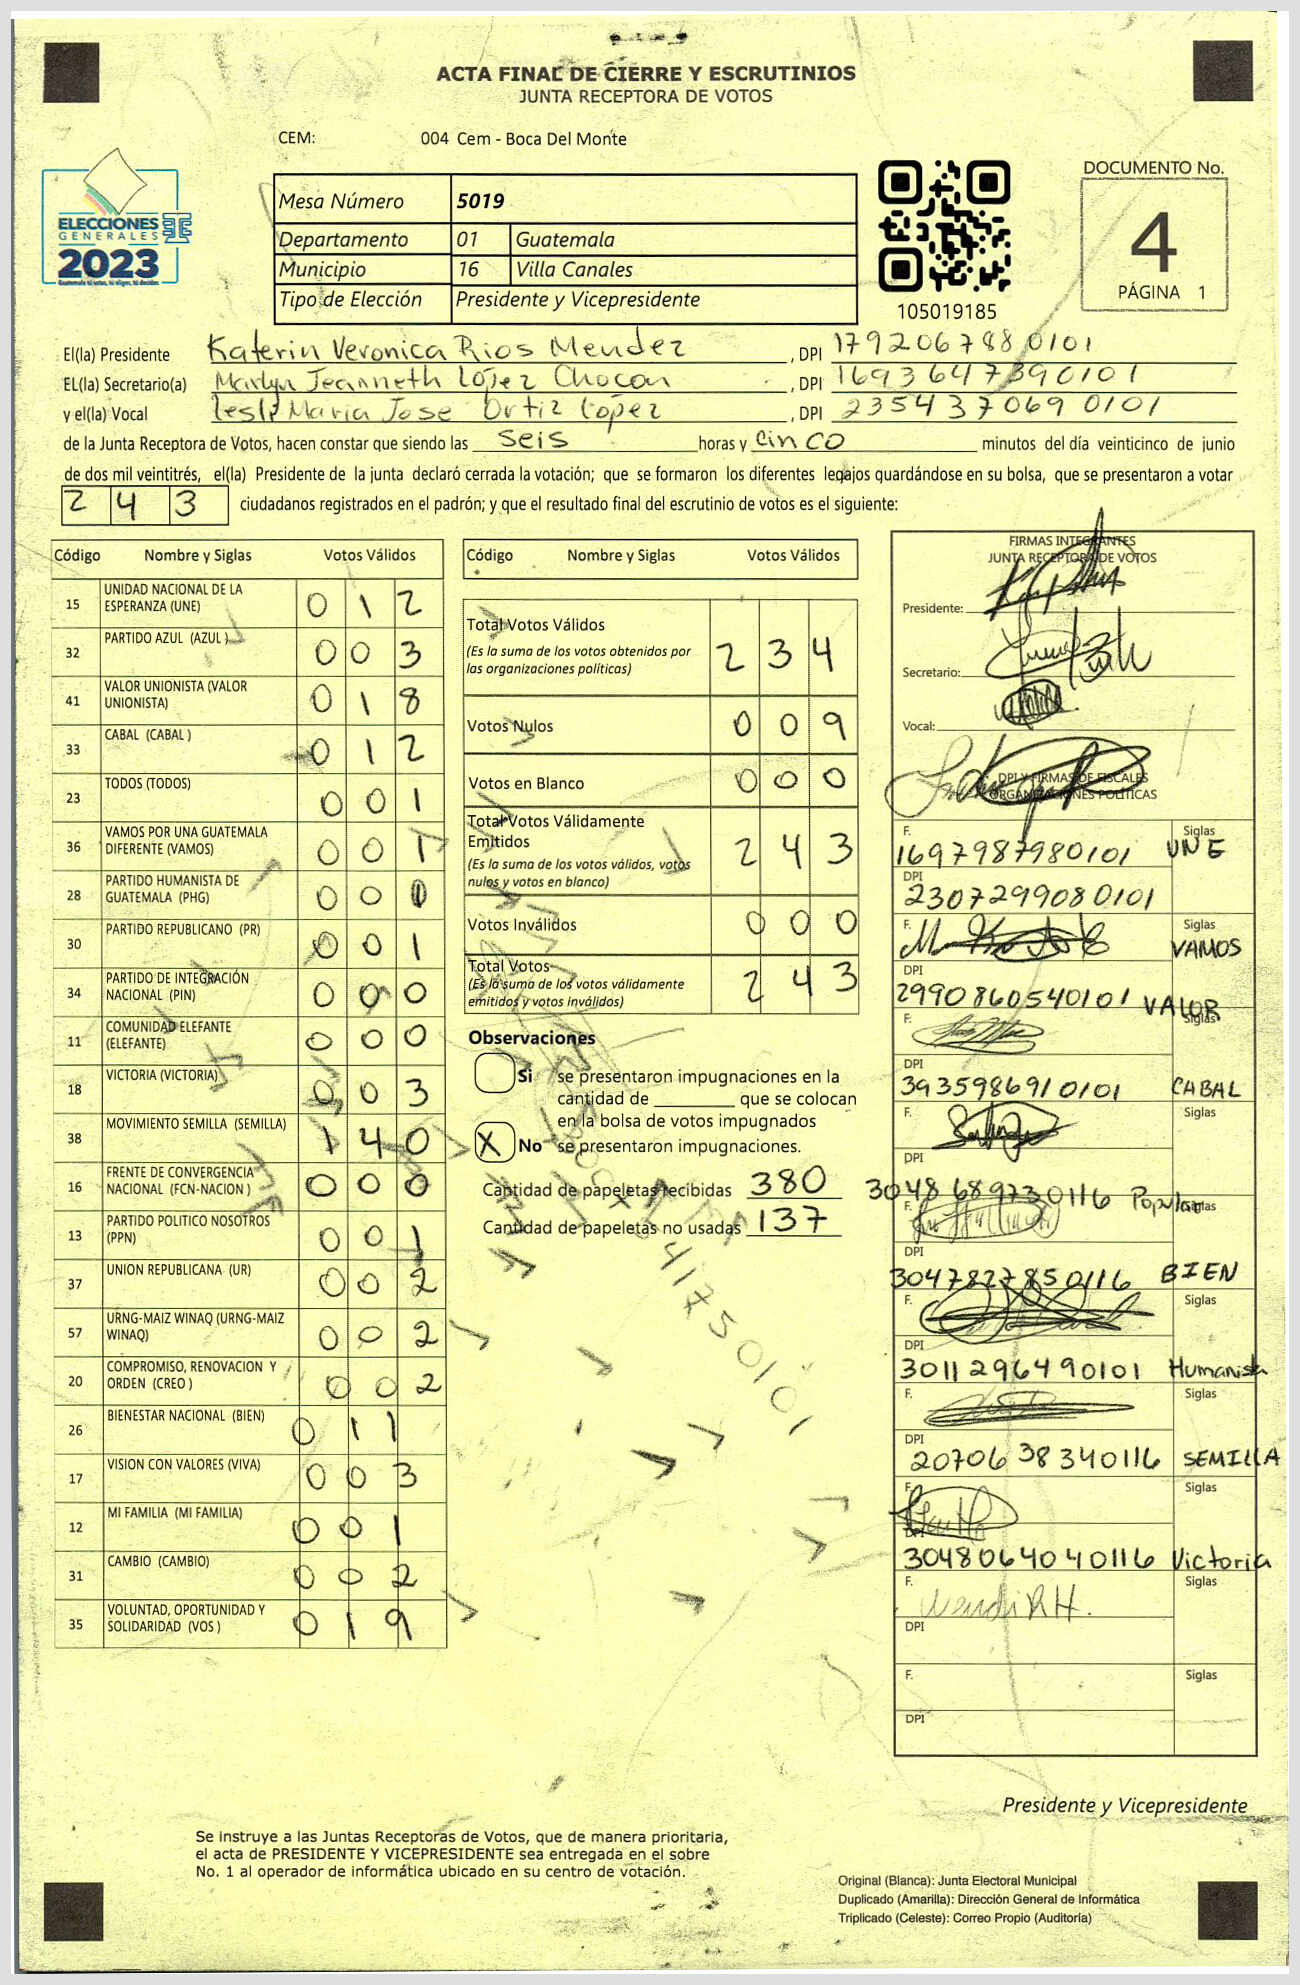 ACTA FINAL DE CIERRE Y ESCRUTINIOS
JUNTA RECEPTORA DE VOTOS
CEM: 004 Cem - Boca Del Monte
ELECCIONES
GENERALES
2023
Mesa Número 5019
Departamento 01 Guatemala
Municipio 16 Villa Canales
Tipo de Elección Presidente y Vicepresidente
105019185
DOCUMENTO No.
4
PÁGINA 1
El(la) Presidente Katerin Veronica Rios Mendez, DPI 1792067880101
EL(la) Secretario(a) Marlyn Jeanneth López Chocon, DPI 1693647390101
y el(la) Vocal Lesli Maria Jose Ortiz López, DPI 2354370690101
de la Junta Receptora de Votos, hacen constar que siendo las seis horas y cinco minutos del día veinticinco de junio
de dos mil veintitrés, el(la) Presidente de la junta declaró cerrada la votación; que se formaron los diferentes legajos guardándose en su bolsa, que se presentaron a votar
243 ciudadanos registrados en el padrón; y que el resultado final del escrutinio de votos es el siguiente:
Código Nombre y Siglas Votos Válidos
15 UNIDAD NACIONAL DE LA ESPERANZA (UNE) 0 1 2
32 PARTIDO AZUL (AZUL ) 0 0 3
41 VALOR UNIONISTA (VALOR UNIONISTA) 0 1 8
33 CABAL (CABAL ) 0 1 2
23 TODOS (TODOS) 0 0 1
36 VAMOS POR UNA GUATEMALA DIFERENTE (VAMOS) 0 0 1
28 PARTIDO HUMANISTA DE GUATEMALA (PHG) 0 0 0
30 PARTIDO REPUBLICANO (PR) 0 0 1
34 PARTIDO DE INTEGRACIÓN NACIONAL (PIN) 0 0 0
11 COMUNIDAD ELEFANTE (ELEFANTE) 0 0 0
18 VICTORIA (VICTORIA) 0 0 3
38 MOVIMIENTO SEMILLA (SEMILLA) 1 4 0
16 FRENTE DE CONVERGENCIA NACIONAL (FCN-NACION ) 0 0 0
13 PARTIDO POLITICO NOSOTROS (PPN) 0 0 1
37 UNION REPUBLICANA (UR) 0 0 2
57 URNG-MAIZ WINAQ (URNG-MAIZ WINAQ) 0 0 2
20 COMPROMISO, RENOVACION Y ORDEN (CREO ) 0 0 2
26 BIENESTAR NACIONAL (BIEN) 0 1 1
17 VISION CON VALORES (VIVA) 0 0 3
12 MI FAMILIA (MI FAMILIA) 0 0 1
31 CAMBIO (CAMBIO) 0 0 2
35 VOLUNTAD, OPORTUNIDAD Y SOLIDARIDAD (VOS ) 0 1 9
Código Nombre y Siglas Votos Válidos
Total Votos Válidos 2 3 4
(Es la suma de los votos obtenidos por
las organizaciones políticas)
Votos Nulos 0 0 9
Votos en Blanco 0 0 0
Total Votos Válidamente
Emitidos 2 4 3
(Es la suma de los votos válidos, votos
nulos y votos en blanco)
Votos Inválidos 0 0 0
Total Votos 2 4 3
(Es la suma de los votos válidamente
emitidos y votos inválidos)
Observaciones
Si se presentaron impugnaciones en la
cantidad de ________ que se colocan
en la bolsa de votos impugnados
X No se presentaron impugnaciones.
Cantidad de papeletas recibidas 380
Cantidad de papeletas no usadas 137
FIRMAS INTEGRANTES
JUNTA RECEPTORA DE VOTOS
Presidente:
Secretario:
Vocal:
DPI Y FIRMAS DE FISCALES
ORGANIZACIONES POLÍTICAS
F. Siglas
1697987980101 UNE
DPI
2307299080101
F. Siglas
VAMOS
DPI
2990860540101 VALOR
F. Siglas
DPI
3935986910101 CABAL
F. Siglas
DPI
3048689730116 Popular
F. Siglas
DPI
3047827850116 BIEN
F. Siglas
DPI
3011296490101 Humanista
F. Siglas
DPI
2070638340116 SEMILLA
F. Siglas
DPI
3048064040116 Victoria
F. Siglas
DPI
F. Siglas
DPI
Presidente y Vicepresidente
Se instruye a las Juntas Receptoras de Votos, que de manera prioritaria,
el acta de PRESIDENTE Y VICEPRESIDENTE sea entregada en el sobre
No. 1 al operador de informática ubicado en su centro de votación.
Original (Blanca): Junta Electoral Municipal
Duplicado (Amarilla): Dirección General de Informática
Triplicado (Celeste): Correo Propio (Auditoría)